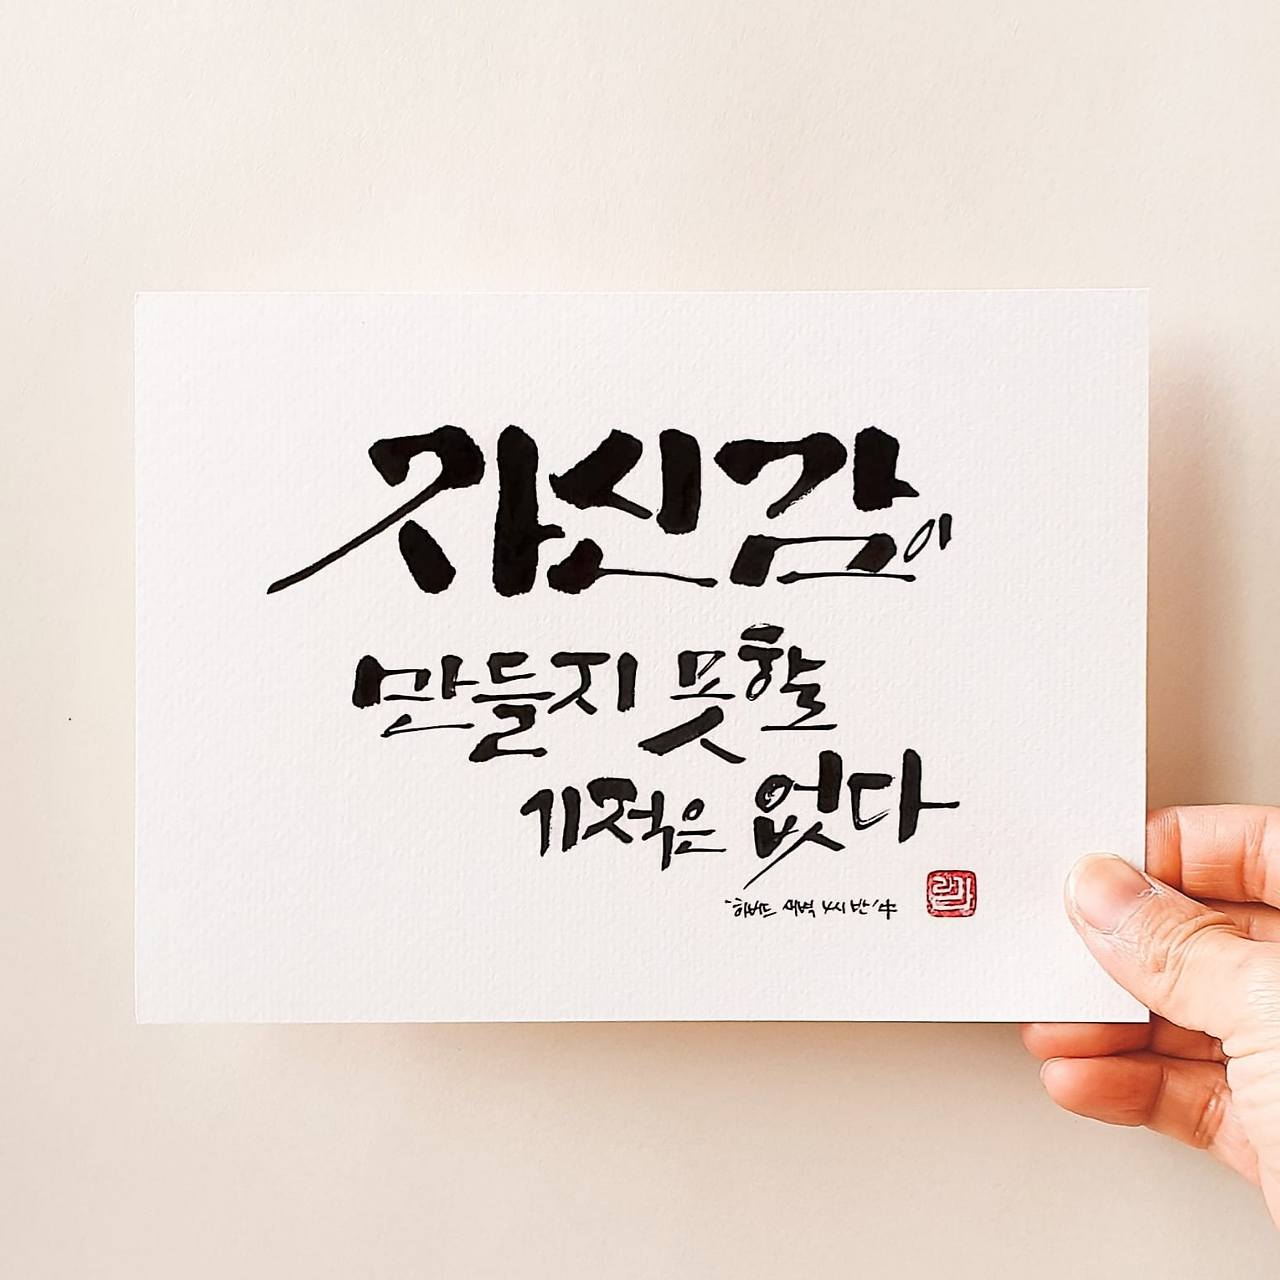 자신감이
만들지 못할
기적은 없다
'하버드 새벽 4시 반' 中